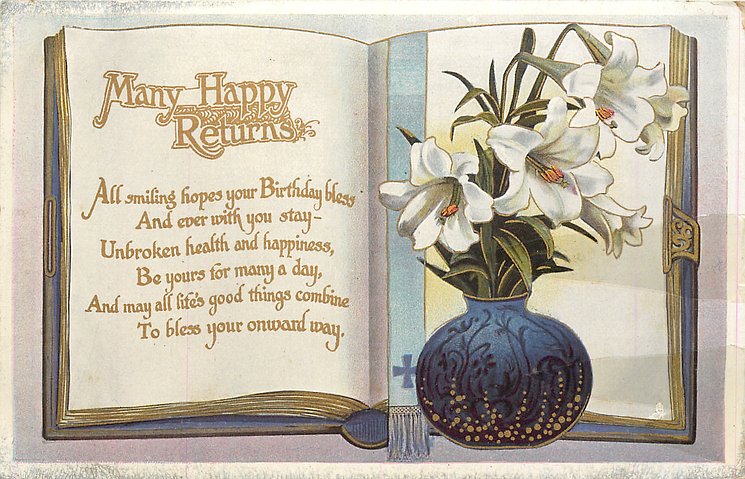 Many Happy
Returns
All smiling hopes your Birthday bless
And ever with you stay—
Unbroken health and happiness,
Be yours for many a day,
And may all life's good things combine
To bless your onward way.